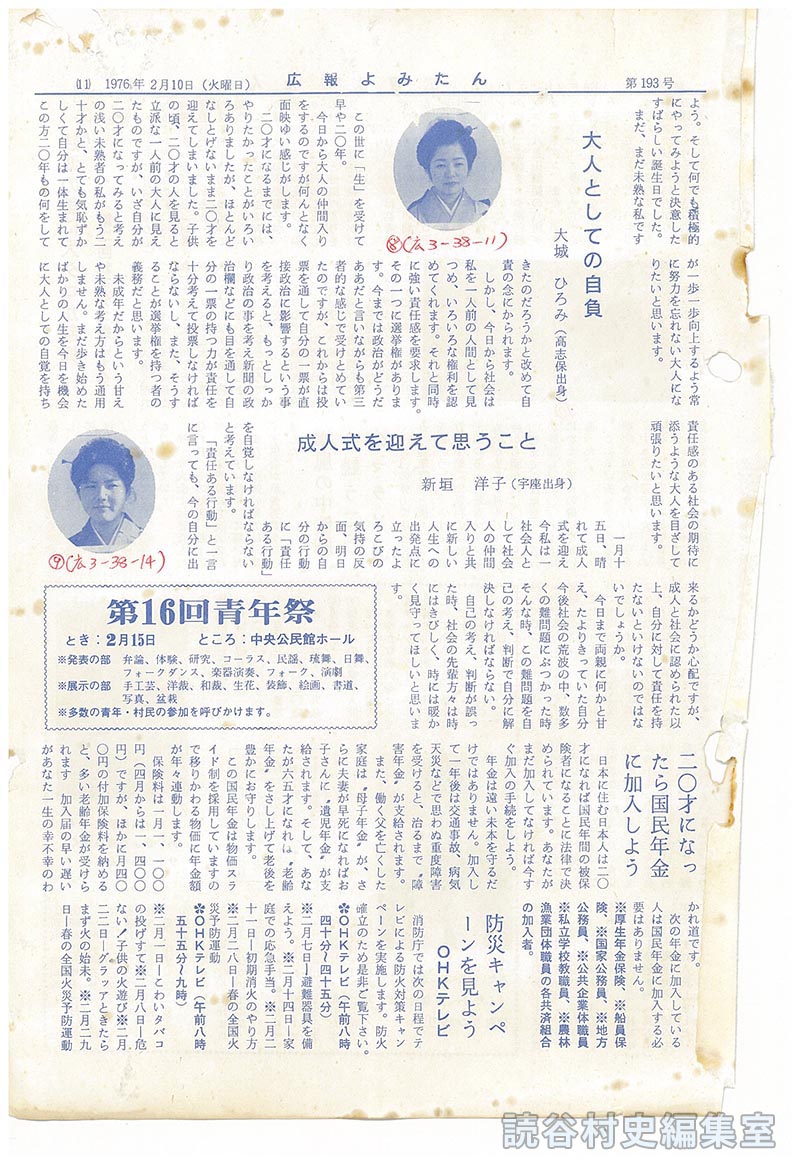 (11) 1976年 2月10日(火曜日)
広報よみたん
第193号
よう。そして何でも積極的
にやってみようと決意した
すばらしい誕生日でした。
まだ、まだ未熟な私です
が一歩一歩向上するよう常
に努力を忘れない大人にな
りたいと思います。
大人としての自負
大城 ひろみ(高志保出身)
⑧(広3-38-11)
この世に「生」を受けて
早や二〇年。
今日から大人の仲間入り
をするのですが何んとなく
面映ゆい感じがします。
二〇才になるまでには、
やりたかったことがいろい
ろありましたが、ほとんど
なしとげないまま二〇才を
迎えてしまいました。子供
の頃、二〇才の人を見ると
立派な一人前の大人に見え
たものですが、いざ自分が
二〇才になってみると考え
の浅い未熟者の私がもう二
十才かと、とても気恥ずか
しくて自分は一体生まれて
この方二〇年もの何をして
きたのだろうかと改めて自
責の念にかられます。
しかし、今日から社会は
私を一人前の人間として見
つめ、いろいろな権利を認
めてくれます。それと同時
に強い責任感を要求します。
その一つに選挙権がありま
す。今までは政治がどうだ
ああだと言いながらも第三
者的な感じで受けとめてい
たのですが、これからは投
票を通して自分の一票が直
接政治に影響するという事
を考えると、もっとしっか
り政治の事を考え新聞の政
治欄などにも目を通して自
分の一票の持つ力が責任を
十分考えて投票しなければ
ならないし、また、そうす
ることが選挙権を持つ者の
義務だと思います。
未成年だからという甘え
や未熟な考え方はもう通用
しません。まだ歩き始めた
ばかりの人生を今日を機会
に大人としての自覚を持ち
責任感のある社会の期待に
添うような大人を目ざして
頑張りたいと思います。
成人式を迎えて思うこと
新垣 洋子(宇座出身)
⑨(広3-38-14)
一月十
五日、晴
れて成人
式を迎え
今私は一
社会人と
して社会
人の仲間
入りと共
に新しい
人生への
出発点に
立ったよ
ろこびの
気持の反
面、明日
からの自
分の行動
に「責任
ある行動」
を自覚しなければならない
と考えています。
「責任ある行動」と一言
に言っても、今の自分に出
来るかどうか心配ですが、
成人と社会に認められた以
上、自分に対して責任を持
たないといけないのではな
いでしょうか。
今日まで両親に何かと甘
え、たよりきっていた自分
今後社会の荒波の中、数多
くの難問題にぶつかった時
そんな時、この難問題を自
己の考え、判断で自分に解
決しなければならない。
自己の考え、判断が誤っ
た時、社会の先輩方々は時
にはきびしく、時には暖か
く見守ってほしいと思いま
す。
第16回青年祭
とき:2月15日 ところ:中央公民館ホール
※発表の部 弁論、体験、研究、コーラス、民謡、琉舞、日舞、
フォークダンス、楽器演奏、フォーク、演劇
※展示の部 手工芸、洋裁、和裁、生花、装飾、絵画、書道、
写真、盆栽
※多数の青年・村民の参加を呼びかけます。
二〇才になっ
たら国民年金
に加入しよう
日本に住む日本人は二〇
才になれば国民年間の被保
険者になることに法律で決
められています。あなたが
まだ加入してなければ今す
ぐ加入の手続をしよう。
年金は遠い未来を守るだ
けではありません。加入し
て一年後は交通事故、病気
天災などで思わぬ重度障害
を受けると、治るまで〝障
害年金〟が支給されます。
また、働く父を亡くした
家庭は〝母子年金〟が、さ
らに夫妻が早死になればお
子さんに〝遺児年金〟が支
給されます。そして、あな
たが六五才になれば〝老齢
年金〟をさし上げて老後を
豊かにお守りします。
この国民年金は物価スラ
イド制を採用していますの
で移りかわる物価に年金額
が年々連動します。
保険料は一月一、一〇〇
円(四月からは一、四〇〇
円)ですが、ほかに月四〇
〇円の付加保険料を納める
と、多い老齢年金が受けら
れます 加入届の早い遅い
があなた一生の幸不幸のわ
かれ道です。
次の年金に加入している
人は国民年金に加入する必
要はありません。
※厚生年金保険、※船員保
険、※国家公務員、※地方
公務員、※公共企業体職員
※私立学校教職員、※農林
漁業団体職員の各共済組合
の加入者。
防災キャンペ
ーンを見よう
OHKテレビ
消防庁では次の日程でテ
レビによる防火対策キャン
ペーンを実施します。防火
確立のため是非ご覧下さい。
✿OHKテレビ(午前八時
四十分~四十五分)
※二月七日ー避難器具を備
えよう。※二月十四日ー家
庭での応急手当。※二月二
十一日ー初期消火のやり方
※二月二八日ー春の全国火
災予防運動
✿OHKテレビ(午前八時
五十五分~九時)
※二月一日ーこわいタバコ
の投げすて※二月八日ー危
ない!子供の火遊び※二月
二二日ーグラッアときたら
まず火の始末。※二月二九
日ー春の全国火災予防運動
読谷村史編集室